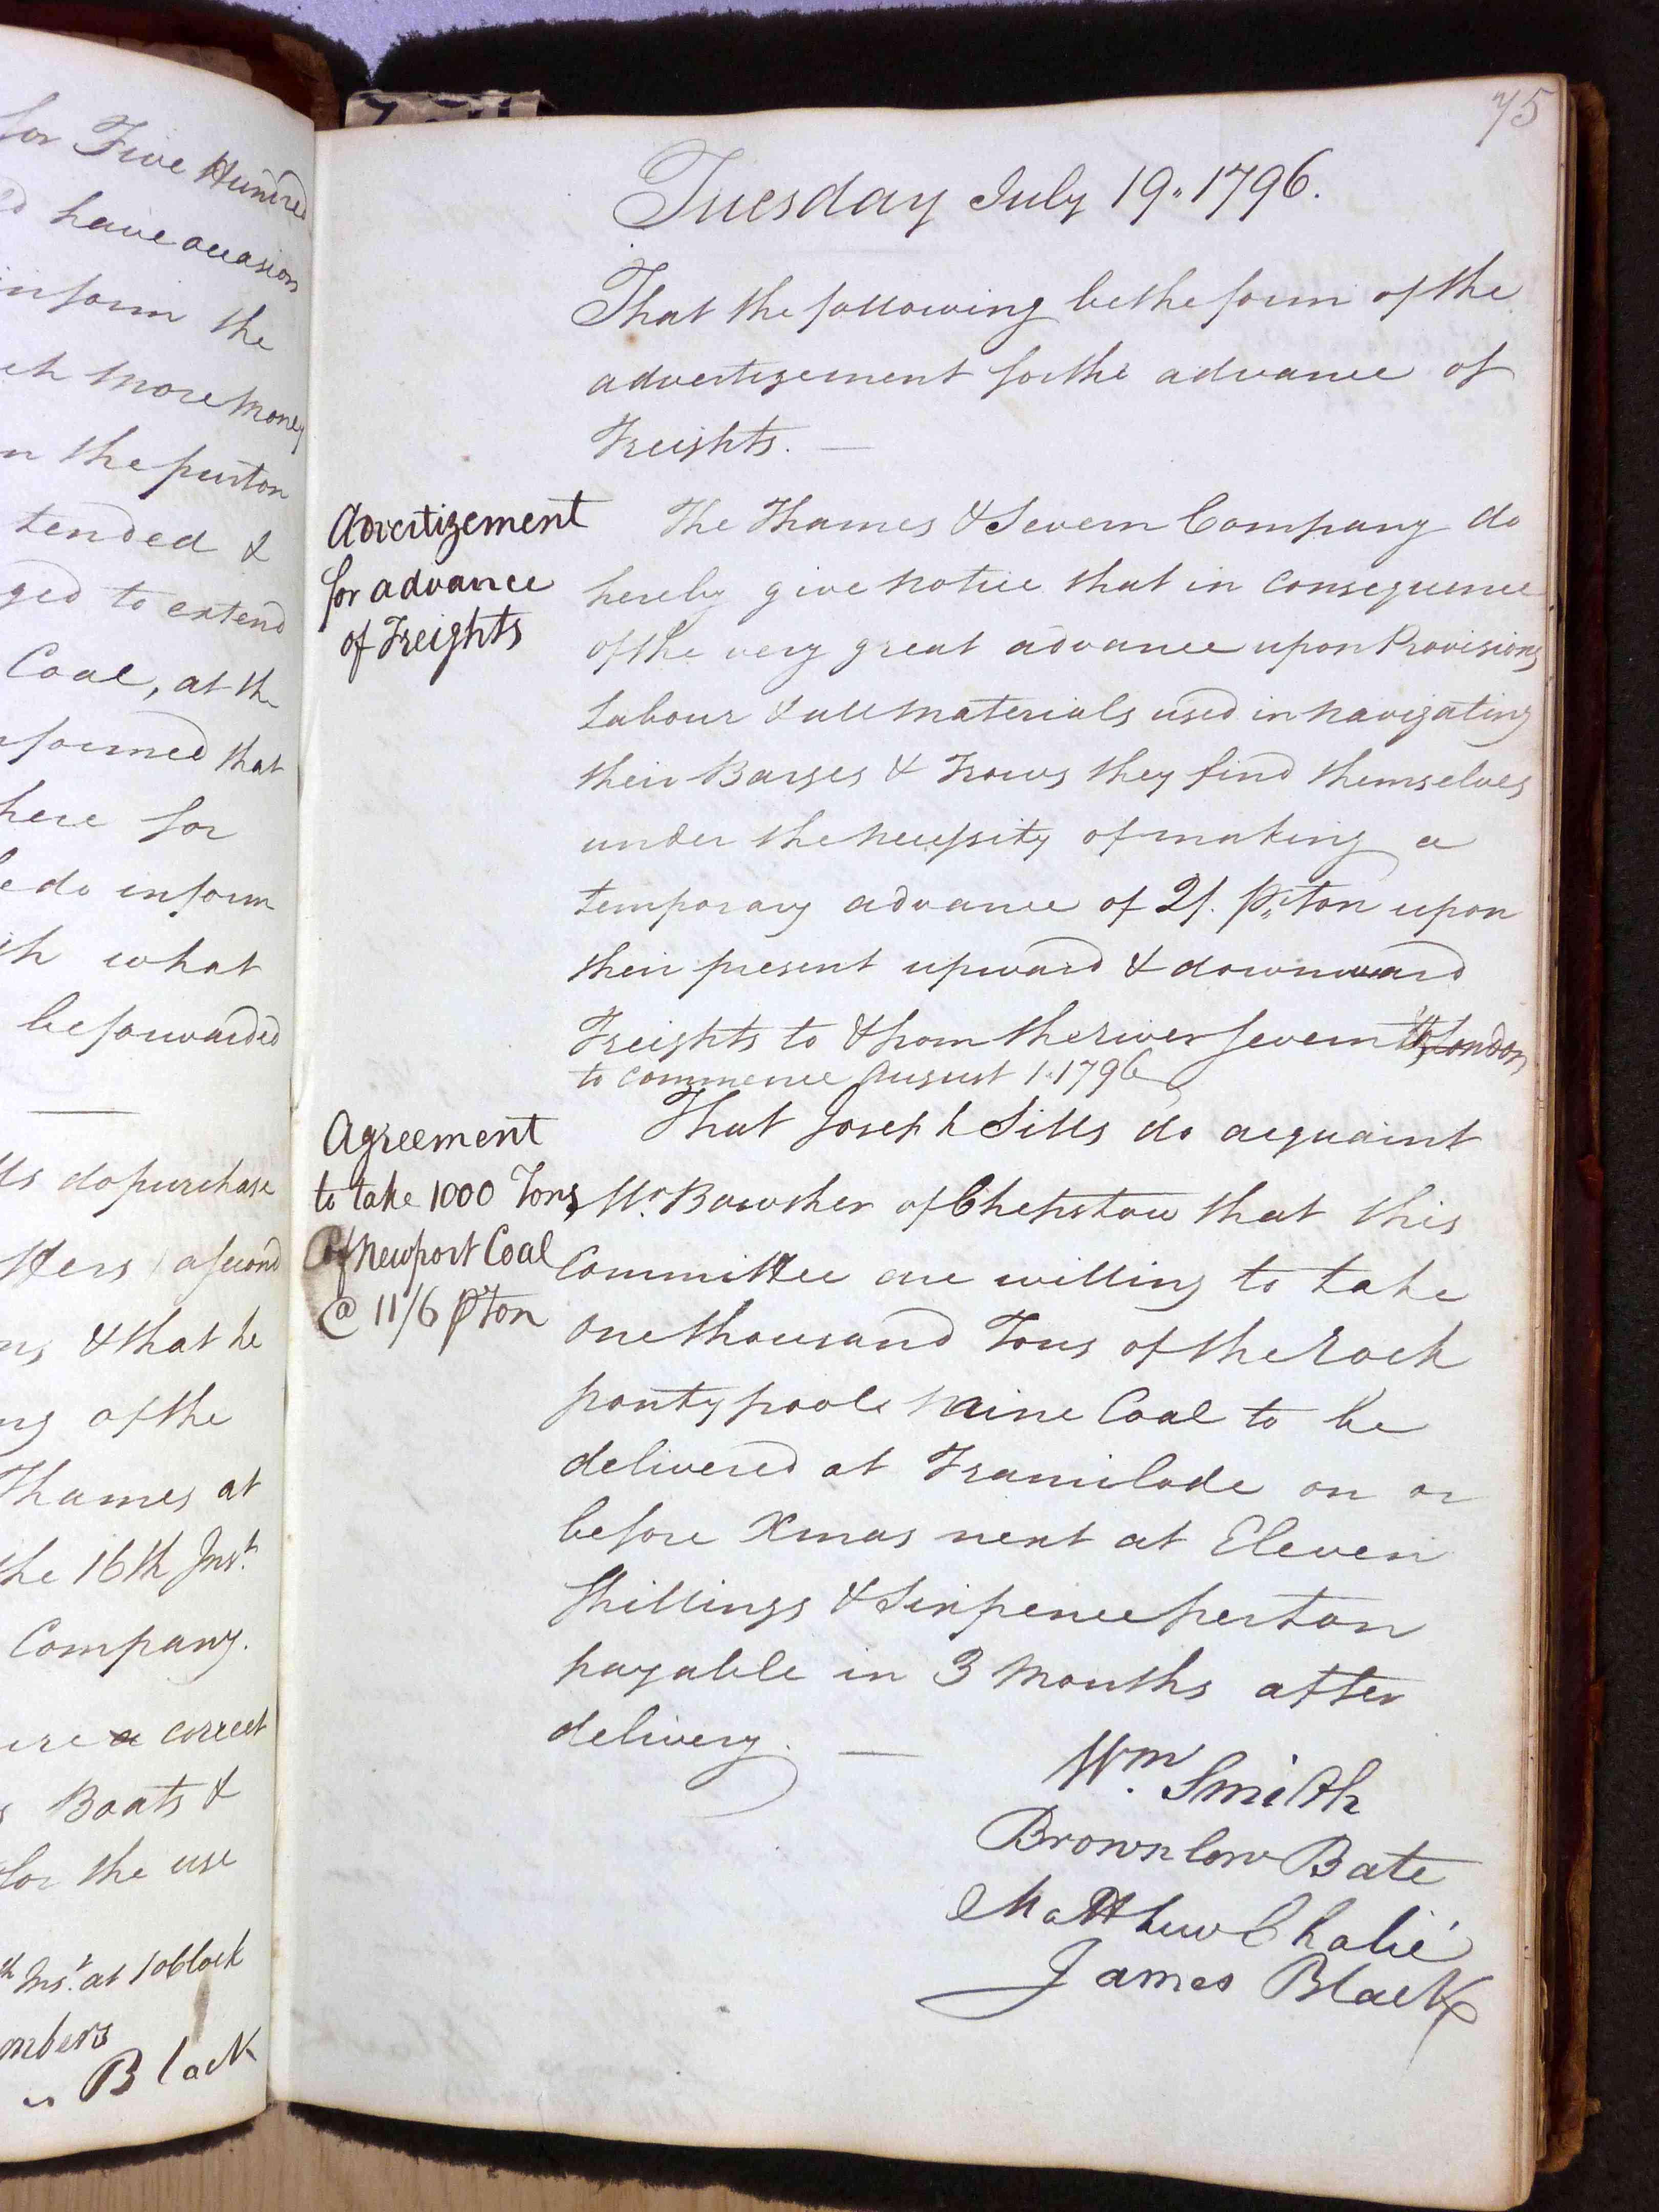 for Five Hundred
have occasion
inform the
more money
the purton
tended &
ged to extend
Coal, at the
formed that
here for
do inform
what
be forwarded
do purchase
a second
& that he
of the
Thames at
the 16th Inst.
Company.
a correct
Boats &
for the use
Inst. at 1 oClock
mbers
Black
75
Tuesday July 19. 1796.
That the following be the form of the
advertizement for the advance of
Freights. —
Advertizement
for advance
of Freights
The Thames & Severn Company do
hereby give notice that in consequence
of the very great advance upon Provisions
Labour & all materials used in navigating
their Barges & Trows they find themselves
under the necessity of making a
temporary advance of 2/. Pr. ton upon
their present upward & downward
Freights to & from the river Severn to London
to commence August 1. 1796
Agreement
to take 1000 Tons
of Newport Coal
@ 11/6 p Ton
That Joseph Sills do acquaint
Mr. Bowsher of Chepstow that this
Committee are willing to take
one thousand Tons of the Rock
pontypoole Maine Coal to be
delivered at Framilode on or
before Xmas next at Eleven
Shillings & Sixpence per ton
payable in 3 Months after
delivery. —
Wm. Smith
Brownlow Bate
Matthew Chalié
James Black